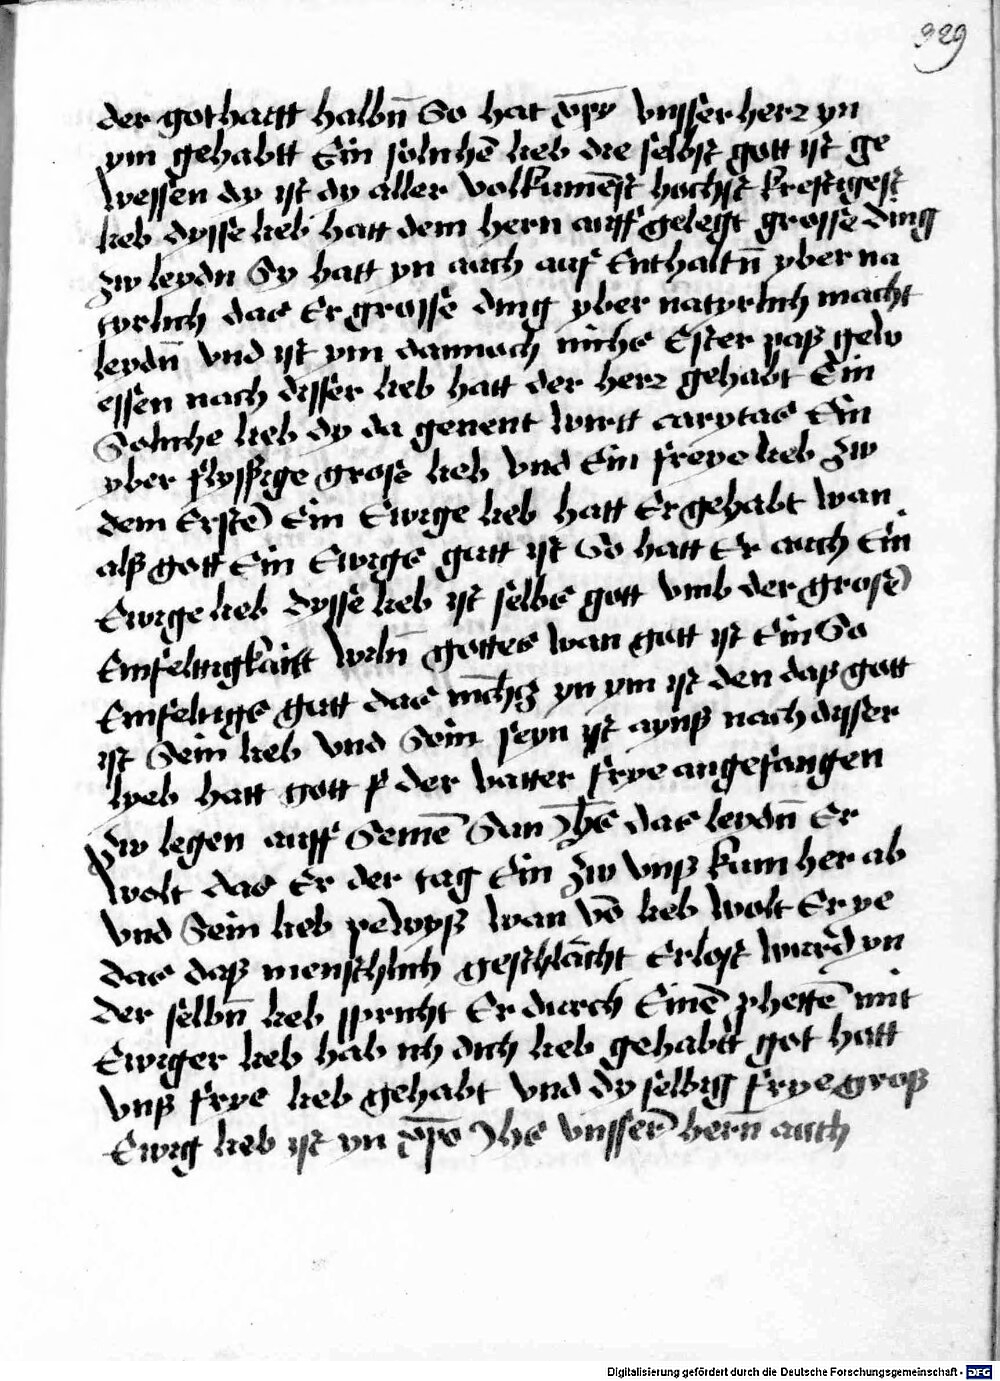 329
der gothaitt halbn̄ So hat xp̄s vnsser herr yn
ym gehabtt Ein solichē lieb die selbst gott ist ge
wessen dy ist dy aller volkumēst hochst krefftigest
lieb dysse lieb hatt dem hern auff gelegt grosse ding
zw leydn Sy hatt yn auch auf Enthaltn̄ yber na
tyrlich das Er grosse ding yber natyrlich macht
leydn̄ vnd ist ym dannoch nichs Ester paß gew
essen nach disser lieb hatt der herr gehabt Ein
Soliche lieb dy da genent wirtt carytas Ein
yber flyssige grose lieb vnd Ein freye lieb zw
dem Erstē Ein Ewige lieb hatt Er gehabt wan
alß gott Ein Ewigs gutt ist So hatt Er auch Ein
Ewige lieb dysse lieb ist selbs gott vmb der grosē
Einfeltigkaitt wiln̄ gottes wan gott ist Ein So
Einfeltigs gutt das nichtz yn ym ist den daß gott
ist Sein lieb vnd Sein seyn ist aynß nach disser
lyeb hatt gott der vatter frye angefangen
zw legen auff Seinē Sun Jhs das leydn̄ Er
wolt das Er der tag Ein zw vnß kum her ab
vnd Sein lieb pewyß wan vō lieb wolt Er ye
das daß menschlich geschlächt Erlost wurd yn
der selbn̄ lieb spricht Er durch Einē phettē mit
Ewiger lieb hab ich dich lieb gehabtt got hatt
vnß frye lieb gehabt vnd dy selbig frye groß
Ewig lieb ist yn xp̄o Jhs vnsserē hern̄ auch
Digitalisierung gefördert durch die Deutsche Forschungsgemeinschaft - DFG